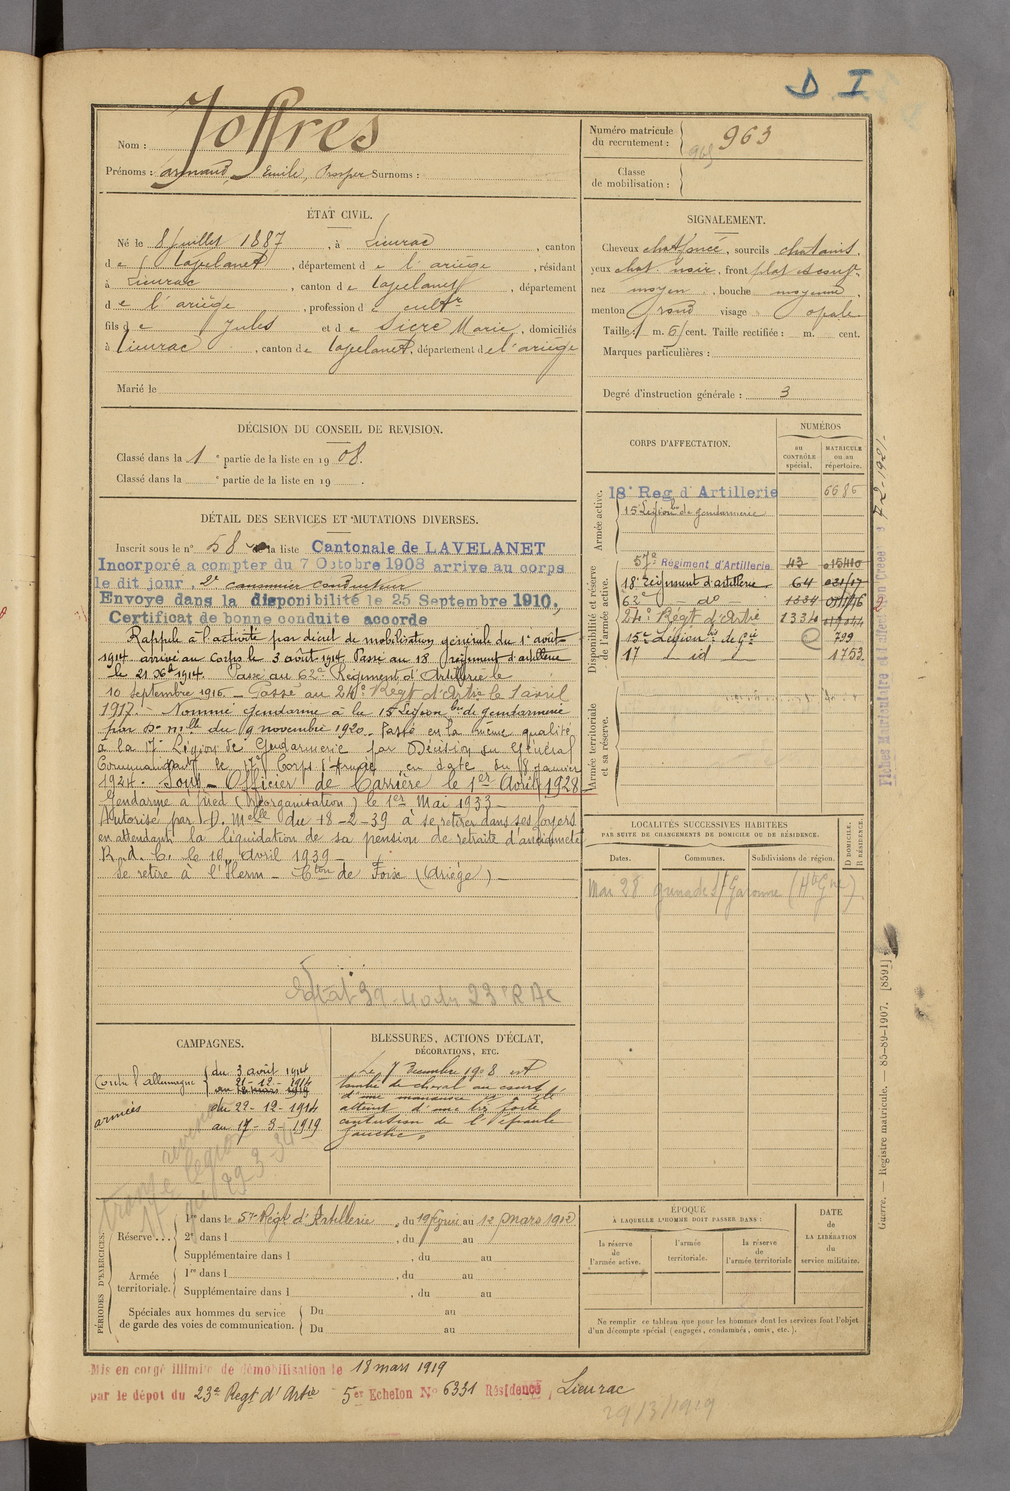 D. I
Nom : Joffres
Prénoms : Armand, Emile, Prosper Surnoms :
Numéro matricule du recrutement : 963
963
Classe de mobilisation :
ÉTAT CIVIL.
Né le 8 Juillet 1887, à Lieurac, canton
de Lavelanet, département de l'ariège, résidant
à Lieurac, canton de Lavelanet, département
de l'ariège, profession de cultr
fils de Jules et de Sicre Marie, domiciliés
à Lieurac, canton de Lavelanet, département de l'ariège
Marié le
SIGNALEMENT.
Cheveux chat foncé, sourcils chatains,
yeux chat noir, front
nez moyen, bouche moyenne,
menton rond visage opale
Taille 1 m. 61 cent. Taille rectifiée : m. cent.
Marques particulières :
Degré d'instruction générale : 3
DÉCISION DU CONSEIL DE REVISION.
Classé dans la 1e partie de la liste en 1908.
Classé dans la e partie de la liste en 19 .
DÉTAIL DES SERVICES ET MUTATIONS DIVERSES.
Inscrit sous le n° 58 de la liste Cantonale de LAVELANET
Incorporé à compter du 7 Octobre 1908 arrive au corps
le dit jour. 2e canonnier conducteur
Envoyé dans la disponibilité le 25 Septembre 1910.
Certificat de bonne conduite accordé
Rappelé à l'activité par décret de mobilisation générale du 1er août
1914 arrivé au Corps le 3 août 1914 Passé au 18 régiment d'artillerie
le 21 Xbre 1914. Passé au 62e Régiment d'Artillerie le
10 septembre 1916. Passé au 24e Régt d'Artie le 1 avril
1917. Nommé gendarme à la 15 Légion bis de gendarmerie
par Dn mlle du 9 novembre 1920. Passé en la même qualité
à la 17e Légion de Gendarmerie par Décision du Général
Commandant le 17e Corps d'Armée en date du 18 janvier
1924. Sous-Officier de Carrière le 1er Avril 1928
Gendarme à pied (Réorganisation) le 1er Mai 1933
Autorisé par D. Melle du 18-2-39 à se retirer dans ses foyers
en attendant la liquidation de sa pension de retraite d'ancienneté
R. d. C. le 16 Avril 1939
Se retire à l'Herm - Cton de Foix (Ariège)
CORPS D'AFFECTATION.
NUMÉROS
au CONTRÔLE spécial.
MATRICULE ou au répertoire.
Armée active.
18e Reg d'Artillerie 6686
15 Légion bis de gendarmerie
Disponibilité et réserve de l'armée active.
57e Régiment d'Artillerie 43 015410
18e Régiment d'artillerie 64
62e do 1334
24e Régt d'Artie 1334
15e Légion bis de Gie 799
17 id 1753
Armée territoriale et sa réserve.
LOCALITÉS SUCCESSIVES HABITÉES
PAR SUITE DE CHANGEMENTS DE DOMICILE OU DE RÉSIDENCE.
Dates. Communes. Subdivisions de région. D DOMICILE. R RÉSIDENCE.
Mai 28 Grenade s/Garonne (Hte Gne)
CAMPAGNES.
Contre l'Allemagne du 3 août 1914
au 21-12-1914
armées du 22-12-1914
au 17-3-1919
BLESSURES, ACTIONS D'ÉCLAT,
DÉCORATIONS, ETC.
Le 7 Décembre 1908 est
tombé de cheval au cours
d'une manœuvre et a été
atteint d'une très forte
contusion de l'épaule
gauche.
PÉRIODES D'EXERCICES.
Réserve... 1re dans le 57e Régt d'Artillerie, du 19 février au 12 Mars 1912
2e dans l , du au
Supplémentaire dans l , du au
Armée territoriale. 1re dans l , du au
Supplémentaire dans l , du au
Spéciales aux hommes du service de garde des voies de communication. Du au
Du au
ÉPOQUE
À LAQUELLE L'HOMME DOIT PASSER DANS :
la réserve de l'armée active.
l'armée territoriale.
la réserve de l'armée territoriale
DATE DE LA LIBÉRATION du service militaire.
Ne remplir ce tableau que pour les hommes dont les services font l'objet
d'un décompte spécial (engagés, condamnés, omis, etc.).
Guerre. — Registre matricule. — 85-89-1907. [8591]
Mis en congé illimité de démobilisation le 18 mars 1919
par le dépôt du 23e Regt d'Artie 5er Echelon No 6331 Résidence, Lieurac
29/3/1919